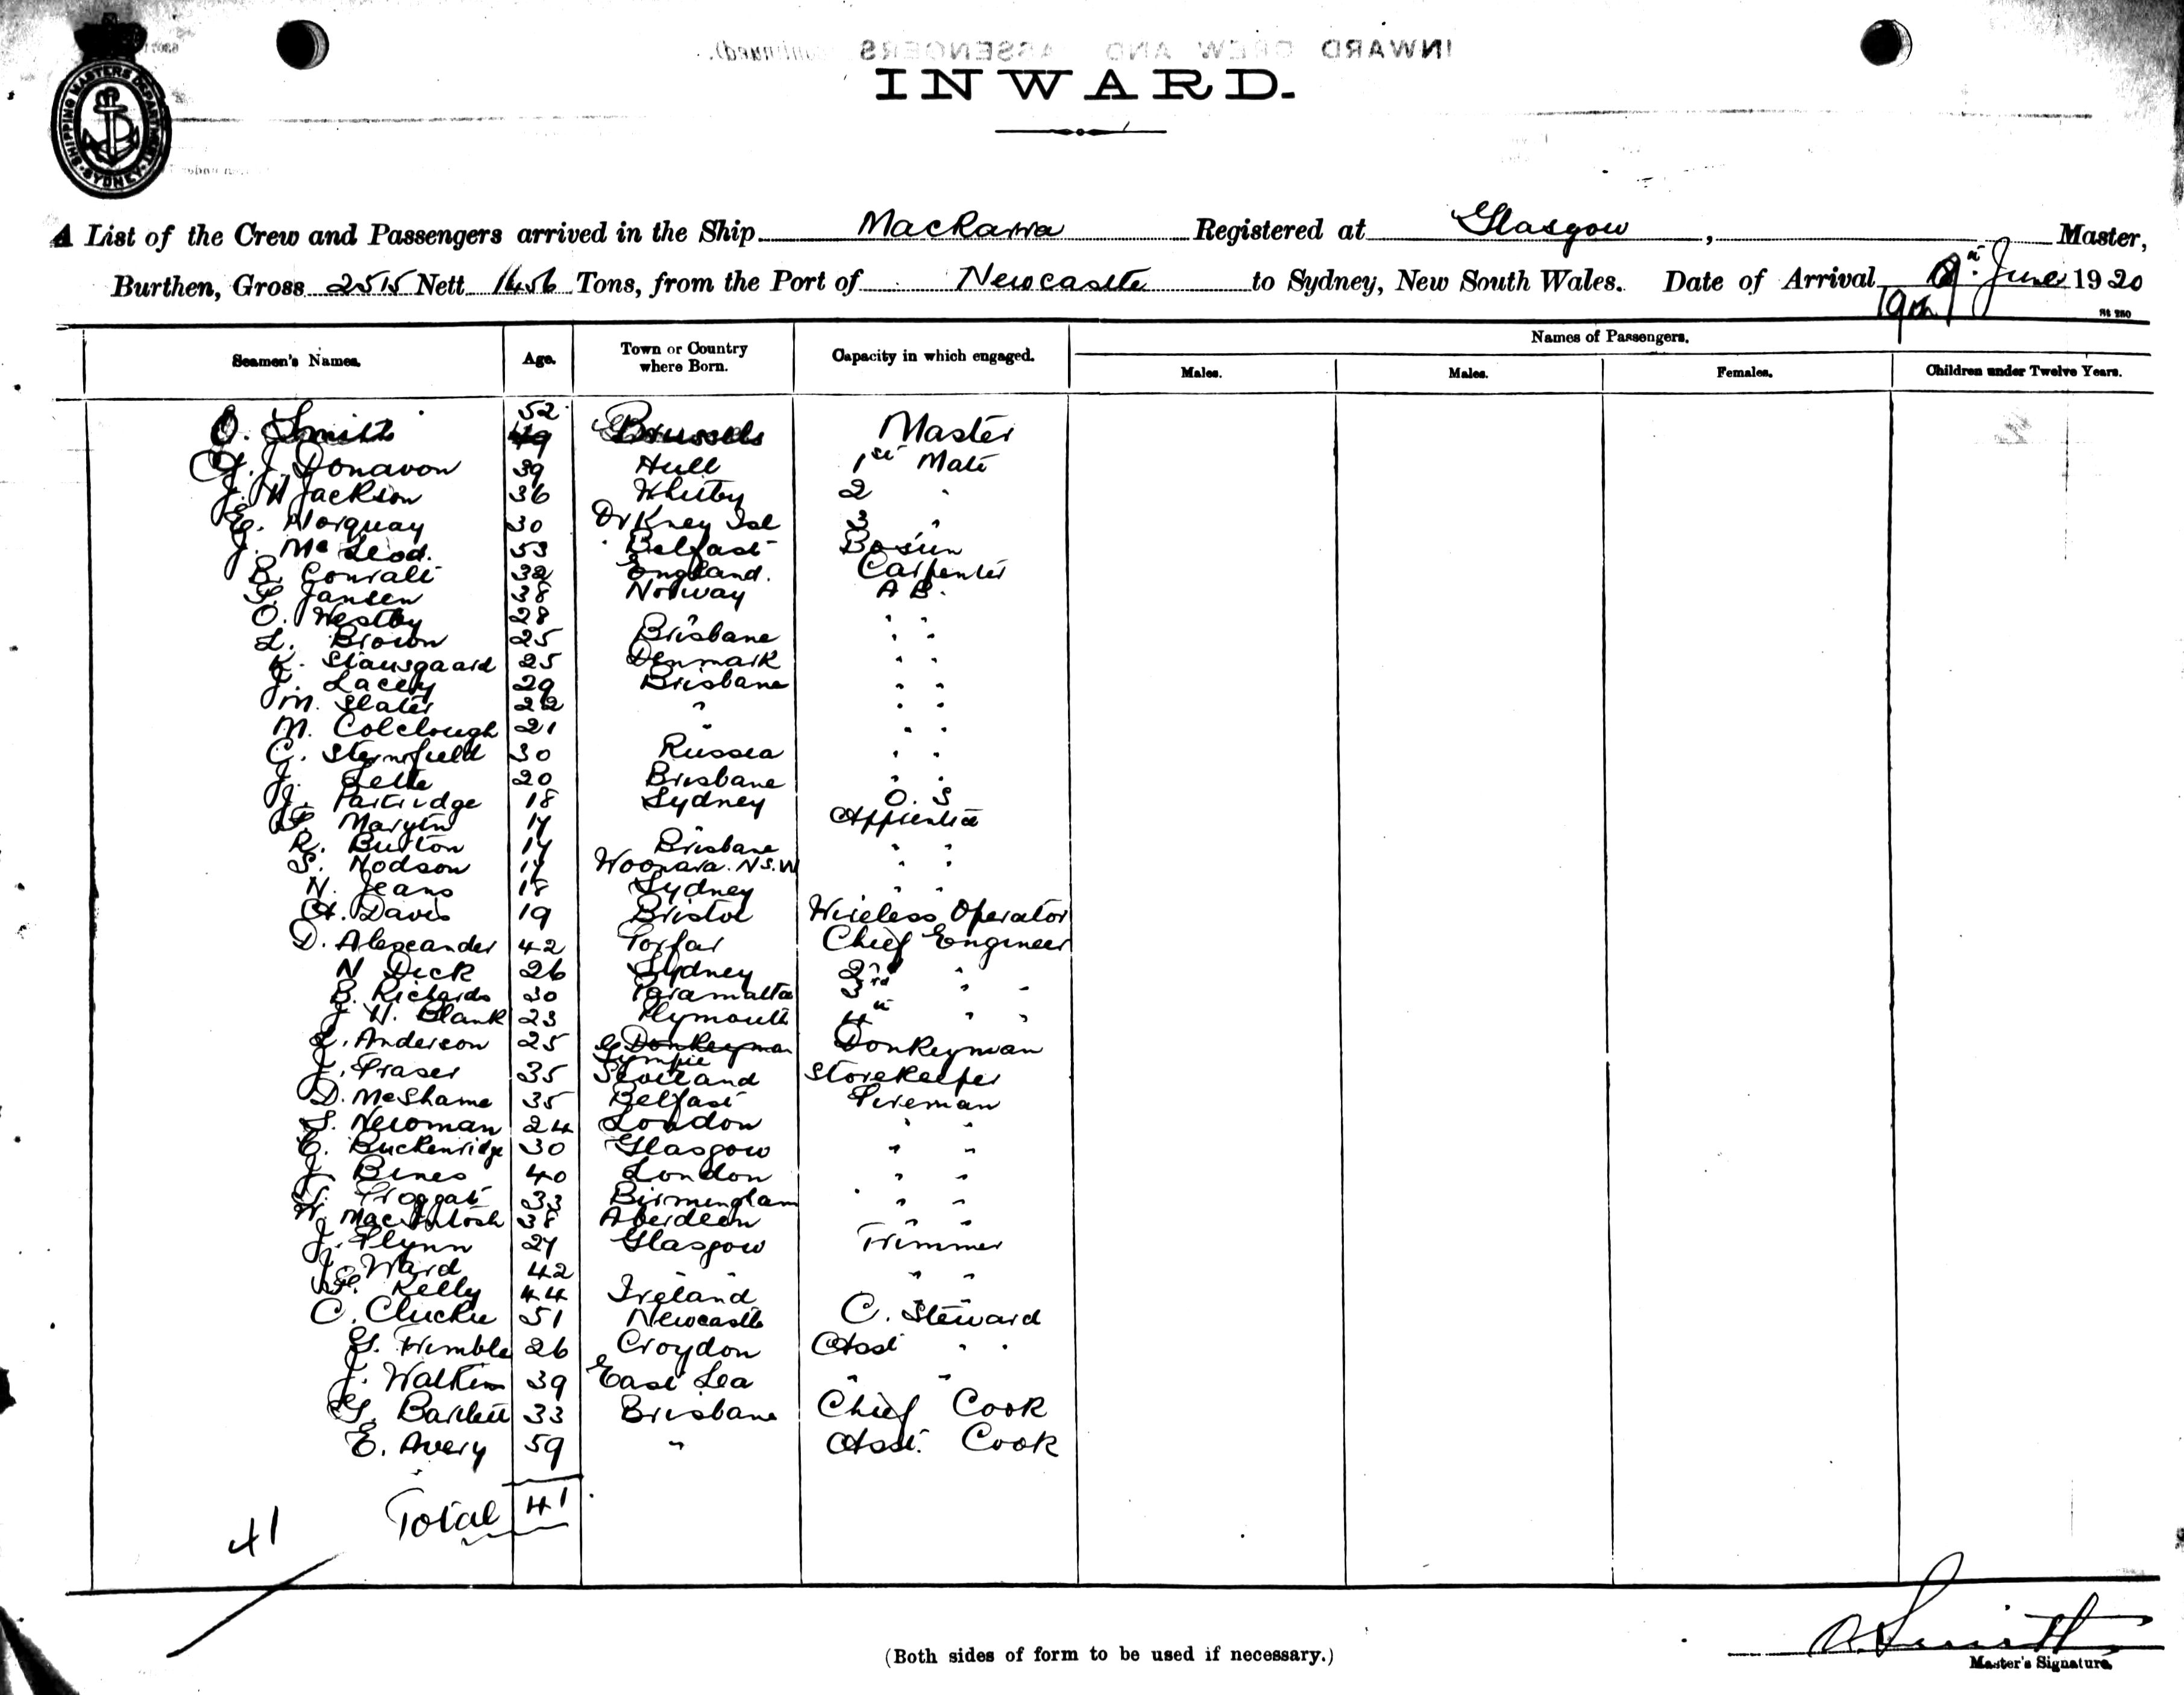 INWARD CREW AND PASSENGERS (continued).
INWARD.
SHIPPING MASTERS DEPARTMENT SYDNEY
A List of the Crew and Passengers arrived in the Ship Mackarra Registered at Glasgow , Master,
Burthen, Gross 2515 Nett 1456 Tons, from the Port of Newcastle to Sydney, New South Wales. Date of Arrival June 1920
19th
Seamen's Names. Age. Town or Country where Born. Capacity in which engaged. Names of Passengers.
Males. Males. Females. Children under Twelve Years.
52
O. Smith 49 Brussels Master
J. Donavon 39 Hull 1st Mate
J. H Jackson 36 Whitby 2 "
E. Norquay 30 Orkney Isl 3 "
J. McLeod. 53 Belfast Bosun
B. Conrali 32 England. Carpenter
P. Jansen 38 Norway A B.
O. Westby 28 " " "
L. Brown 25 Brisbane " "
K. Stausgaard 25 Denmark " "
J. Lacey 29 Brisbane " "
M. Slater 22 " " "
M. Colclough 21 " " "
C. Sternfield 30 Russia " "
J. Lette 20 Brisbane " "
J. Partridge 18 Sydney O. S
Maryin 17 Apprentice
R. Burton 17 Brisbane " "
S. Hodson 17 Woonara. N.S.W " "
N. Jeans 18 Sydney " "
A. Davis 19 Bristol Wireless Operator
D. Alexander 42 Forfar Chief Engineer
N Dick 26 Sydney 2nd "
B. Richards 30 Paramatta 3rd " "
J. H. Blank 23 Plymouth 4th " "
L. Anderson 25 Donkeyman Donkeyman
Gympie
J. Fraser 35 Scotland Storekeeper
D. McShame 35 Belfast Fireman
S. Newman 24 London " "
C. Buckenridge 30 Glasgow " "
J. Benes 40 London " "
Froggatt 33 Birmingham " "
MacIntosh 38 Aberdeen " "
J. Flynn 27 Glasgow Trimmer
J. Ward 42 " " " "
Kelly 44 Ireland " "
C. Cluckie 51 Newcastle C. Steward
G. Trimble 26 Croydon Asst " "
J. Watkins 39 East Sea " "
G. Bartlett 33 Brisbane Chief Cook
E. Avery 59 " Asst. Cook
Total 41
41
(Both sides of form to be used if necessary.)
O. Smith
Master's Signature.